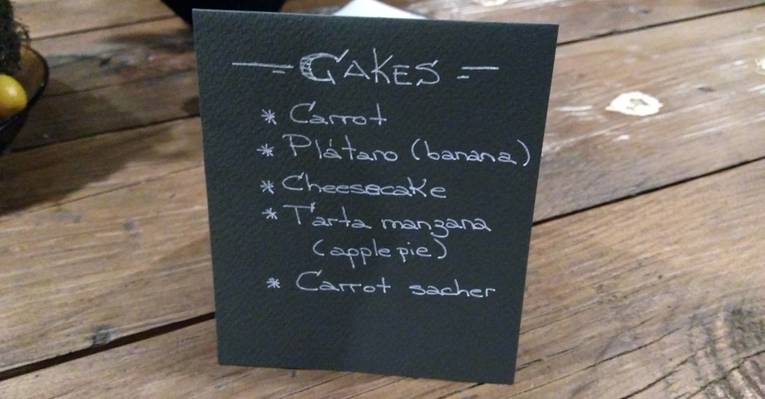 CAKES
* Carrot
* Plátano (banana)
* Cheesecake
* Tarta manzana
(apple pie)
* Carrot sacher